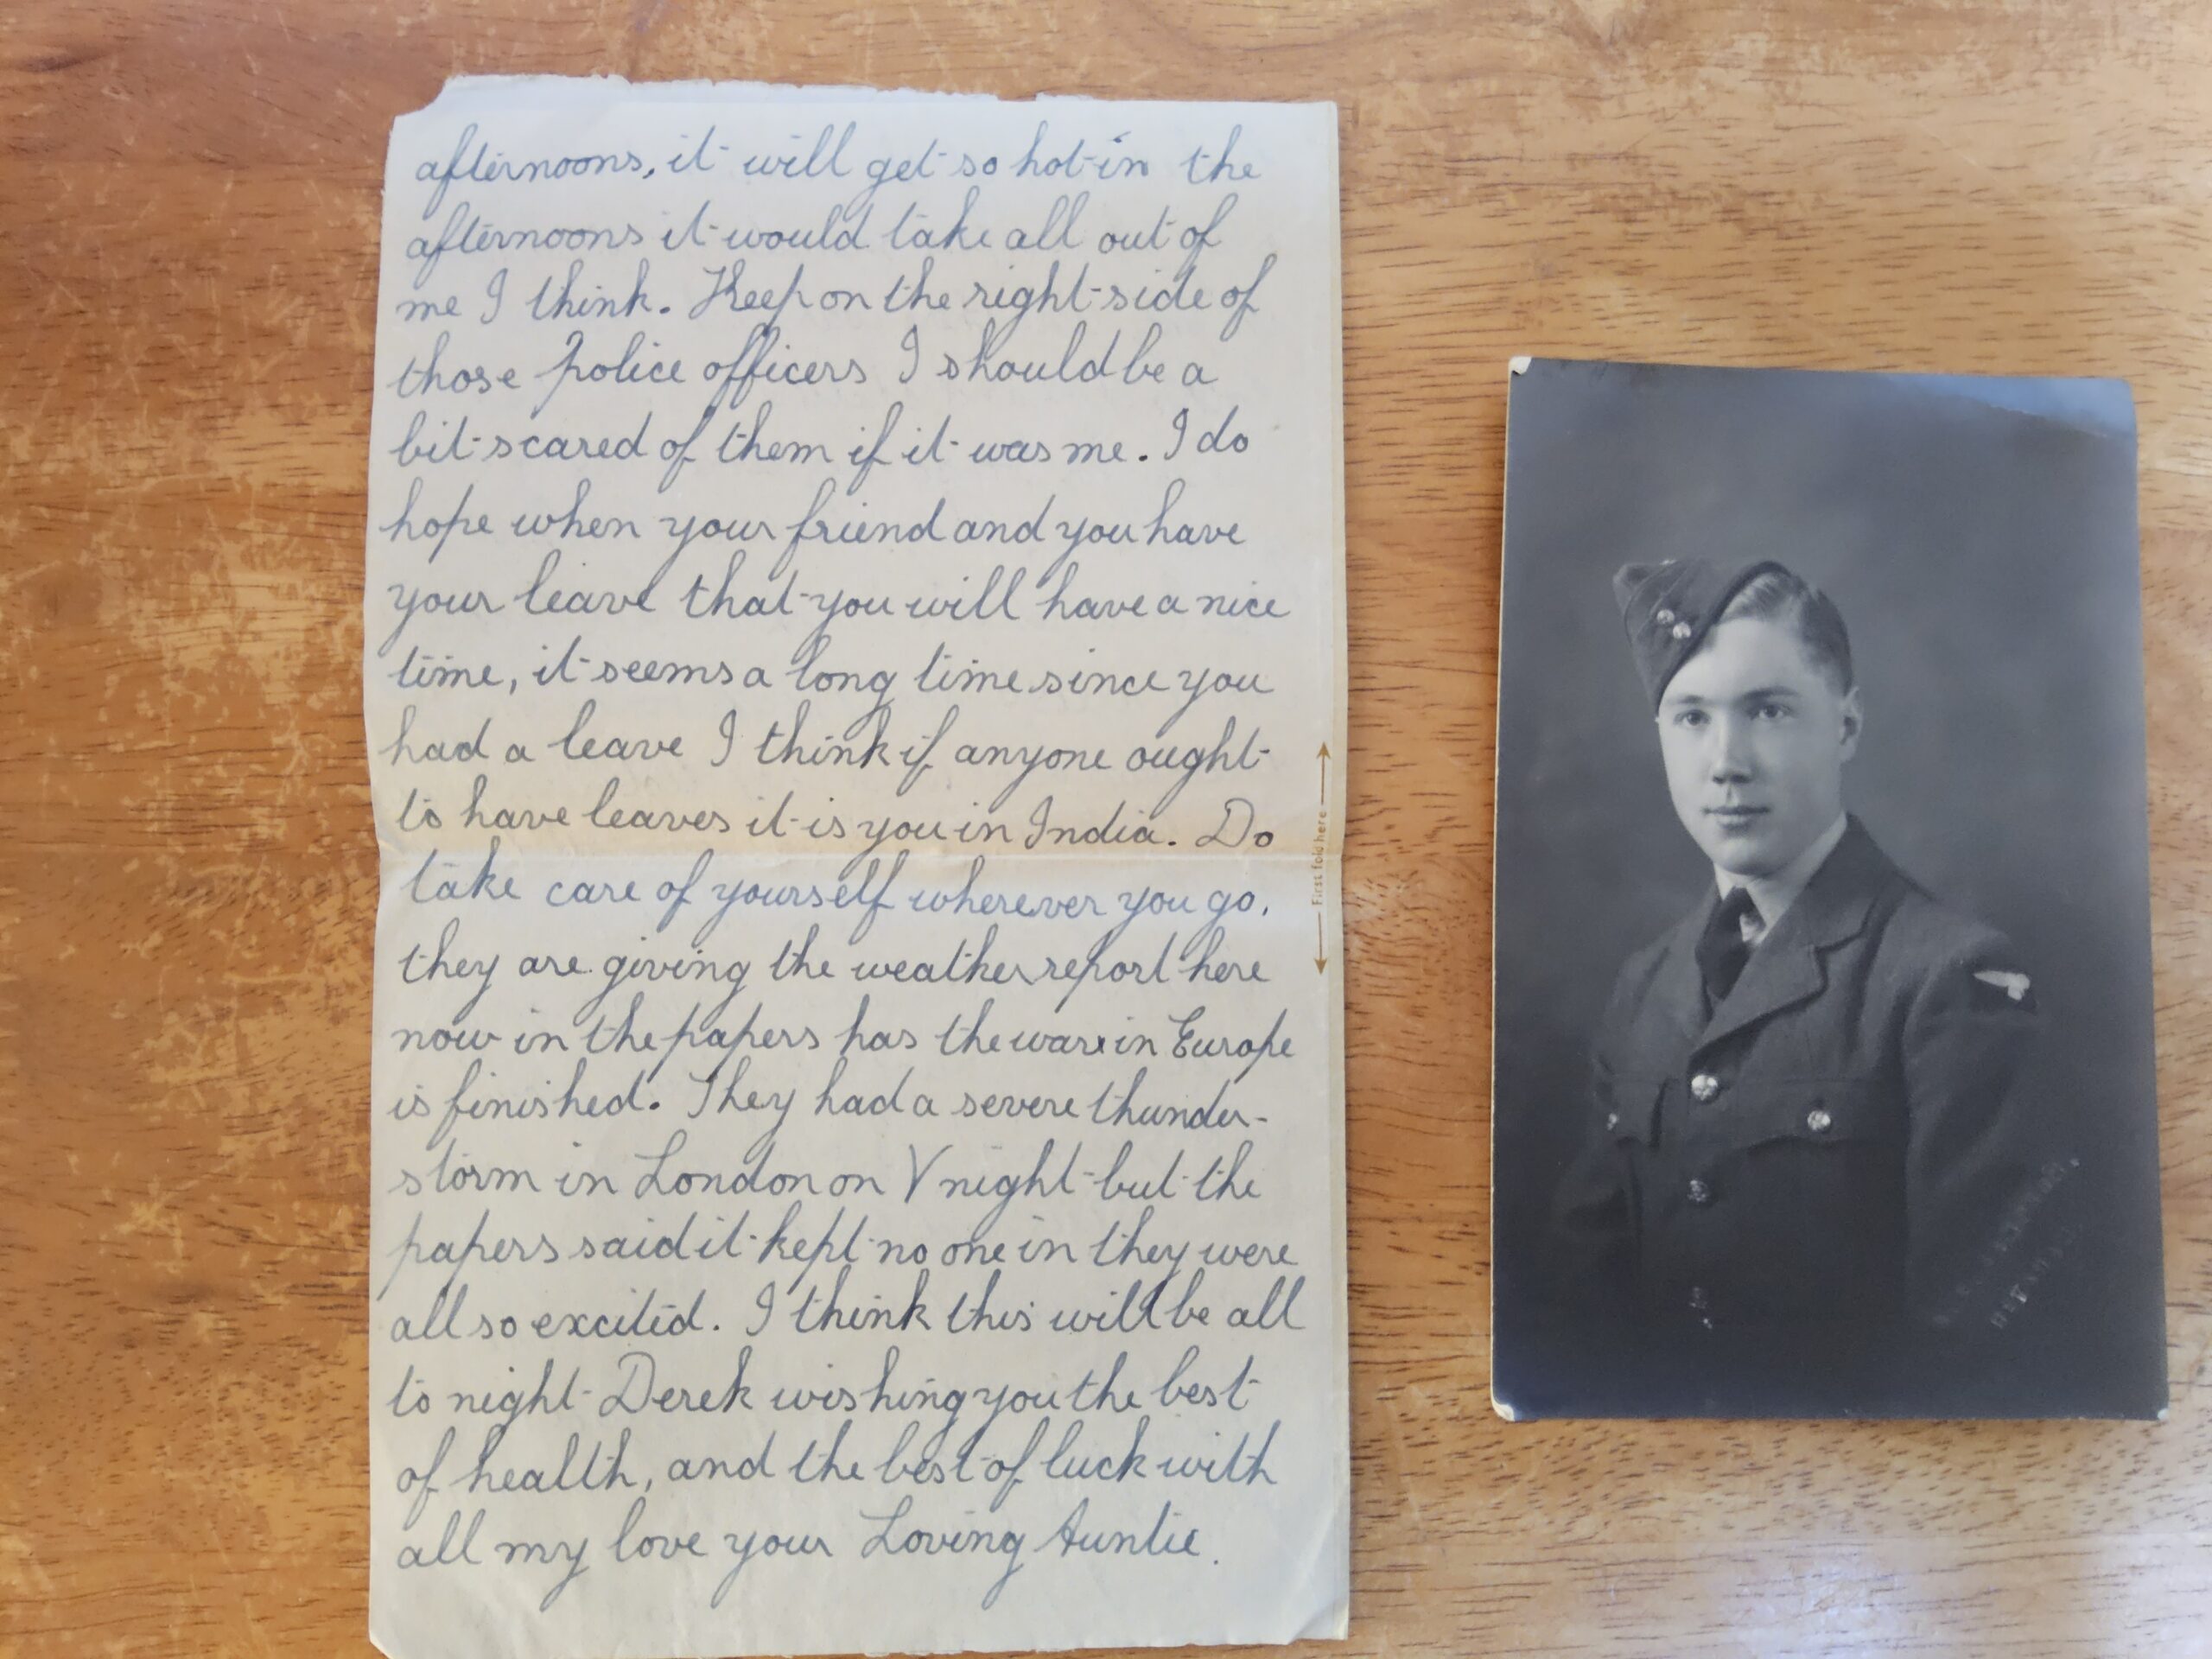 afternoons, it will get so hot in the
afternoons it would take all out of
me I think. Keep on the right side of
those police officers I should be a
bit scared of them if it was me. I do
hope when your friend and you have
your leave that you will have a nice
time, it seems a long time since you
had a leave I think if anyone ought
to have leaves it is you in India. Do
take care of yourself wherever you go.
they are giving the weather report here
now in the papers has the war in Europe
is finished. They had a severe thunder-
storm in London on V night but the
papers said it kept no one in they were
all so excited. I think this will be all
to night Derek wishing you the best
of health, and the best of luck with
all my love your Loving Auntie.
First fold here